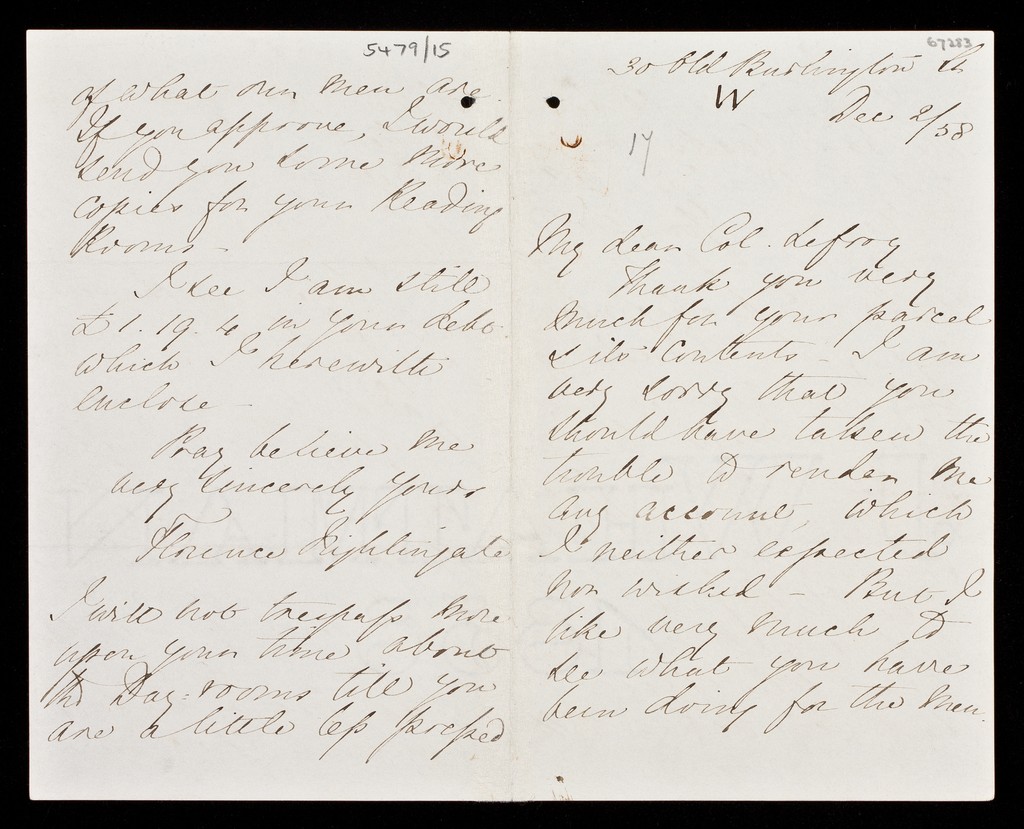 67283
30 Old Burlington St
W
Dec 2/58
17
My dear Col. Lefroy
Thank you very
much for your parcel
& its contents – I am
very sorry that you
should have taken the
trouble to render me
any account, which
I neither expected
nor wished – But I
like very much to
see what you have
been doing for the men.
5479/15
of what our men are.
If you approve, I would
send you some more
copies for your Reading
Rooms –
I see I am still
£1.19.4 in your debt
which I herewith
enclose –
Pray believe me
very sincerely yours
Florence Nightingale
I will not trespass more
upon your time about
the Day-rooms till you
are a little less pressed